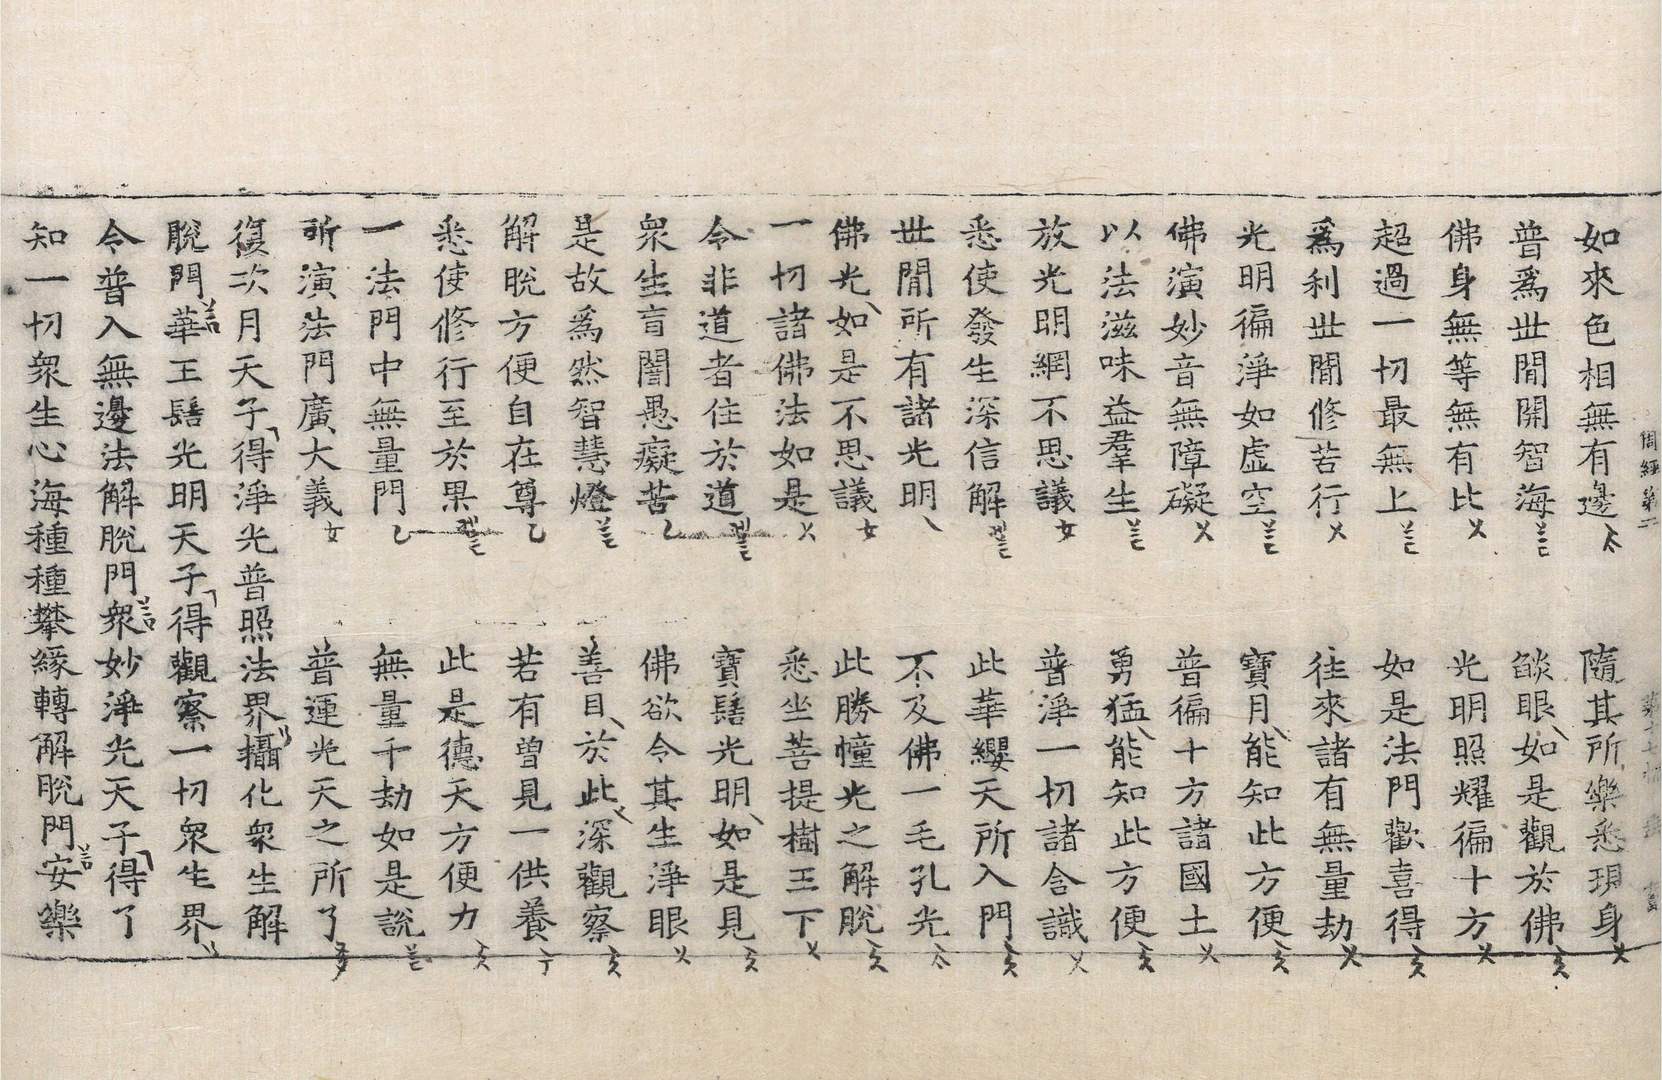 周經第二
如來色相無有邊 隨其所樂悉現身
普爲世間開智海 焰眼如是觀於佛
佛身無等無有比 光明照耀徧十方
超過一切最無上 如是法門歡喜得
爲利世間修苦行 往來諸有無量劫
光明徧淨如虛空 寶月能知此方便
佛演妙音無障礙 普徧十方諸國土
以法滋味益羣生 勇猛能知此方便
放光明網不思議 普淨一切諸含識
悉使發生深信解 此華纓天所入門
世間所有諸光明 不及佛一毛孔光
佛光如是不思議 此勝幢光之解脫
一切諸佛法如是 悉坐菩提樹王下
令非道者住於道 寶髻光明如是見
衆生盲闇愚癡苦 佛欲令其生淨眼
是故爲然智慧燈 善目於此深觀察
解脫方便自在尊 若有曾見一供養
悉使修行至於果 此是德天方便力
一法門中無量門 無量千劫如是說
所演法門廣大義 普運光天之所了
復次月天子得淨光普照法界攝化衆生解
脫門華王髻光明天子得觀察一切衆生界
令普入無邊法解脫門衆妙淨光天子得了
知一切衆生心海種種攀緣轉解脫門安樂